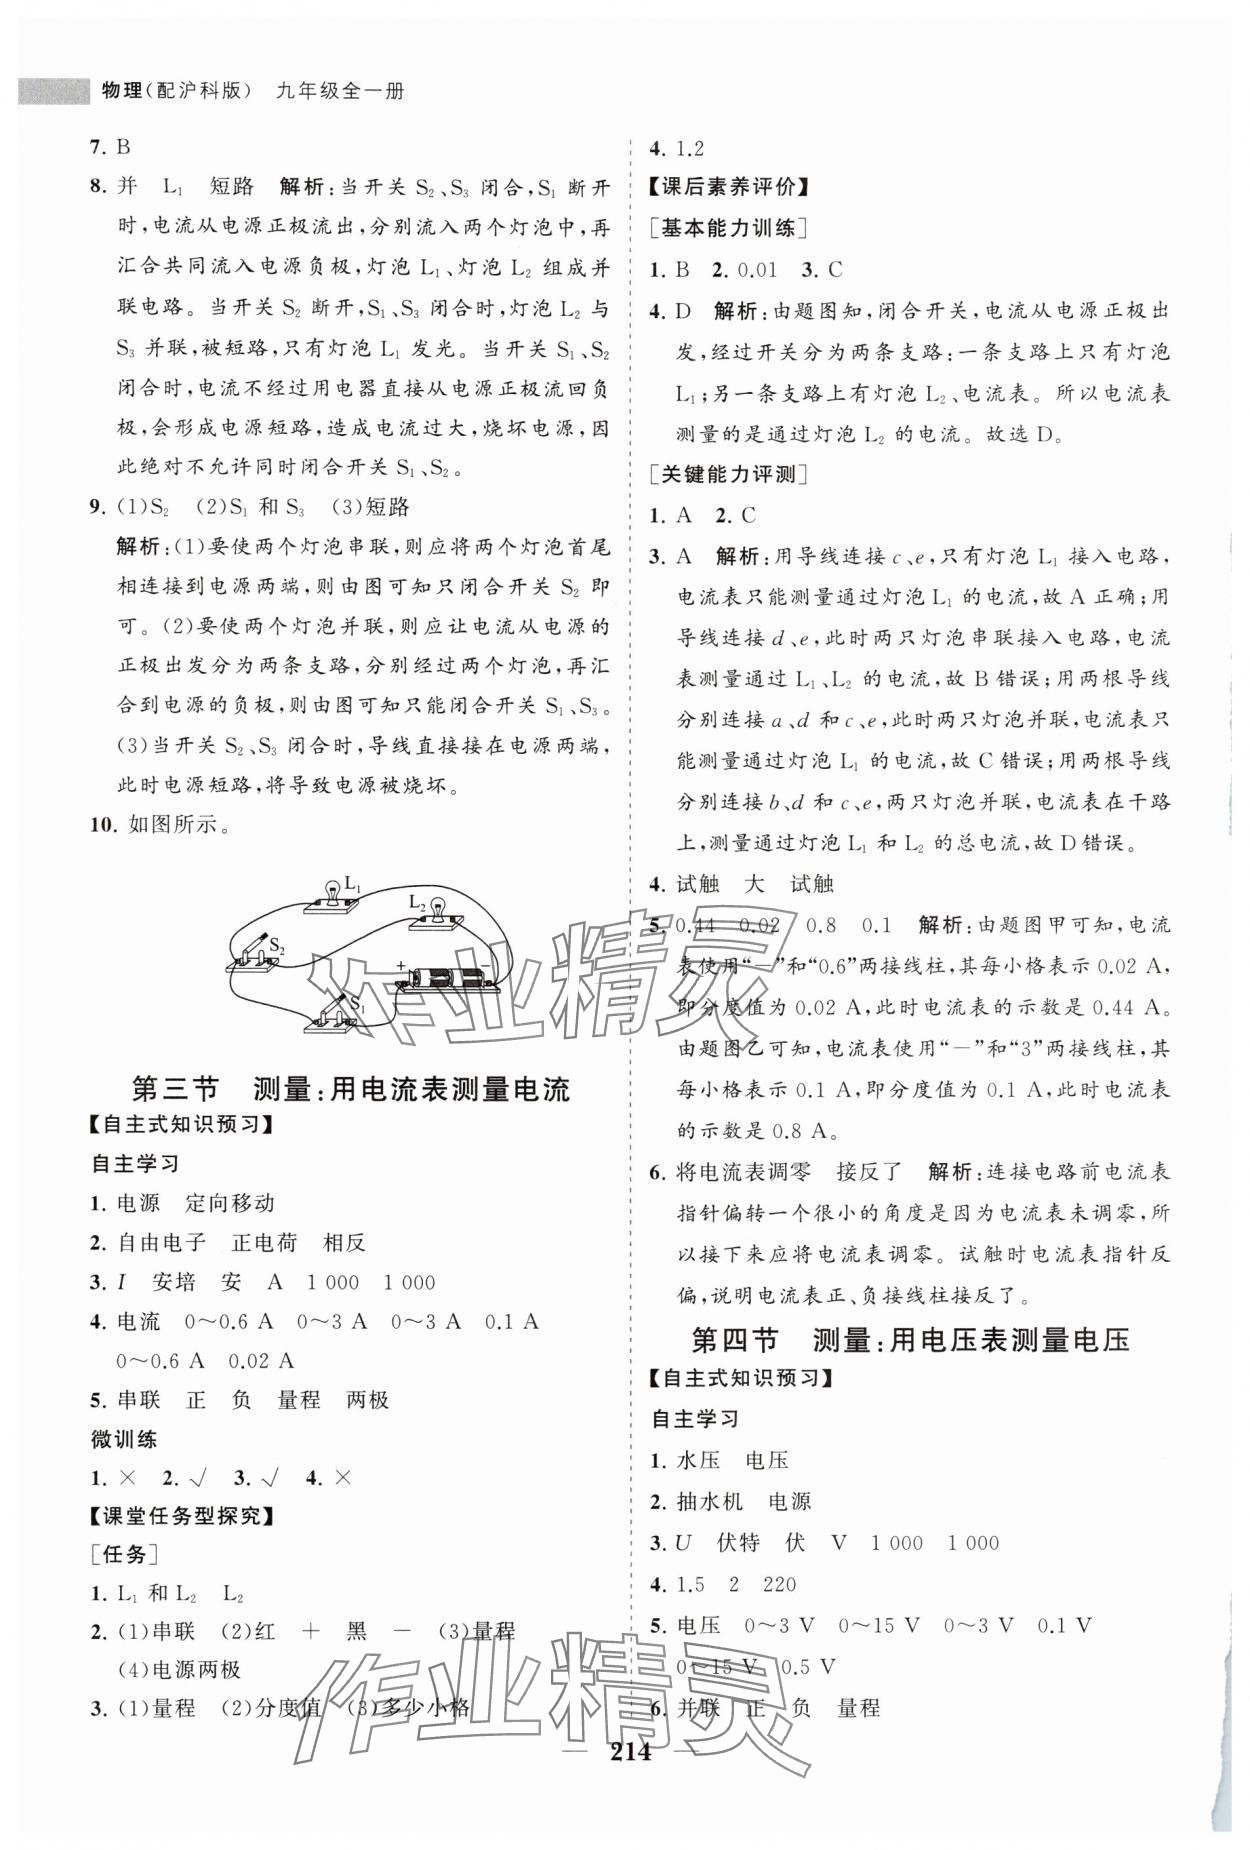 物理(配沪科版) 九年级全一册
7. B
8. 并 L₁ 短路 解析:当开关 S₂、S₃ 闭合,S₁ 断开
时,电流从电源正极流出,分别流入两个灯泡中,再
汇合共同流入电源负极,灯泡 L₁、灯泡 L₂ 组成并
联电路。当开关 S₂ 断开,S₁、S₃ 闭合时,灯泡 L₂ 与
S₃ 并联,被短路,只有灯泡 L₁ 发光。当开关 S₁、S₂
闭合时,电流不经过用电器直接从电源正极流回负
极,会形成电源短路,造成电流过大,烧坏电源,因
此绝对不允许同时闭合开关 S₁、S₂。
9. (1)S₂ (2)S₁ 和 S₃ (3)短路
解析:(1)要使两个灯泡串联,则应将两个灯泡首尾
相连接到电源两端,则由图可知只闭合开关 S₂ 即
可。(2)要使两个灯泡并联,则应让电流从电源的
正极出发分为两条支路,分别经过两个灯泡,再汇
合到电源的负极,则由图可知只能闭合开关 S₁、S₃。
(3)当开关 S₂、S₃ 闭合时,导线直接接在电源两端,
此时电源短路,将导致电源被烧坏。
10. 如图所示。
L₁
L₂
S₂
+ −
S₁
第三节 测量:用电流表测量电流
【自主式知识预习】
自主学习
1. 电源 定向移动
2. 自由电子 正电荷 相反
3. I 安培 安 A 1 000 1 000
4. 电流 0～0.6 A 0～3 A 0～3 A 0.1 A
0～0.6 A 0.02 A
5. 串联 正 负 量程 两极
微训练
1. × 2. √ 3. √ 4. ×
【课堂任务型探究】
[任务]
1. L₁ 和 L₂ L₂
2. (1)串联 (2)红 + 黑 − (3)量程
(4)电源两极
3. (1)量程 (2)分度值 (3)多少小格
4. 1.2
【课后素养评价】
[基本能力训练]
1. B 2. 0.01 3. C
4. D 解析:由题图知,闭合开关,电流从电源正极出
发,经过开关分为两条支路:一条支路上只有灯泡
L₁;另一条支路上有灯泡 L₂、电流表。所以电流表
测量的是通过灯泡 L₂ 的电流。故选 D。
[关键能力评测]
1. A 2. C
3. A 解析:用导线连接 c、e,只有灯泡 L₁ 接入电路,
电流表只能测量通过灯泡 L₁ 的电流,故 A 正确;用
导线连接 d、e,此时两只灯泡串联接入电路,电流
表测量通过 L₁、L₂ 的电流,故 B 错误;用两根导线
分别连接 a、d 和 c、e,此时两只灯泡并联,电流表只
能测量通过灯泡 L₁ 的电流,故 C 错误;用两根导线
分别连接 b、d 和 c、e,两只灯泡并联,电流表在干路
上,测量通过灯泡 L₁ 和 L₂ 的总电流,故 D 错误。
4. 试触 大 试触
5. 0.44 0.02 0.8 0.1 解析:由题图甲可知,电流
表使用“−”和“0.6”两接线柱,其每小格表示 0.02 A,
即分度值为 0.02 A,此时电流表的示数是 0.44 A。
由题图乙可知,电流表使用“−”和“3”两接线柱,其
每小格表示 0.1 A,即分度值为 0.1 A,此时电流表
的示数是 0.8 A。
6. 将电流表调零 接反了 解析:连接电路前电流表
指针偏转一个很小的角度是因为电流表未调零,所
以接下来应将电流表调零。试触时电流表指针反
偏,说明电流表正、负接线柱接反了。
第四节 测量:用电压表测量电压
【自主式知识预习】
自主学习
1. 水压 电压
2. 抽水机 电源
3. U 伏特 伏 V 1 000 1 000
4. 1.5 2 220
5. 电压 0～3 V 0～15 V 0～3 V 0.1 V
0～15 V 0.5 V
6. 并联 正 负 量程
作业精灵
作业精灵
— 214 —